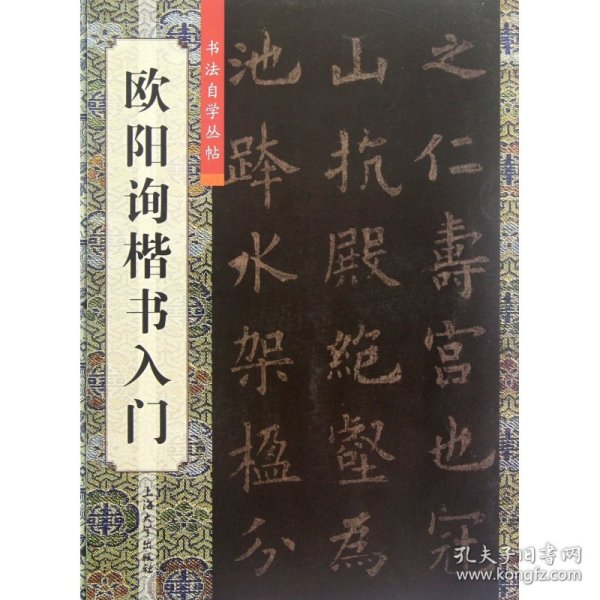 欧阳询楷书入门
书法自学丛帖
之仁寿宫也冠
山抗殿绝壑為
池跨水架楹分
上海大学出版社
孔夫子旧书网
www.kongfz.com